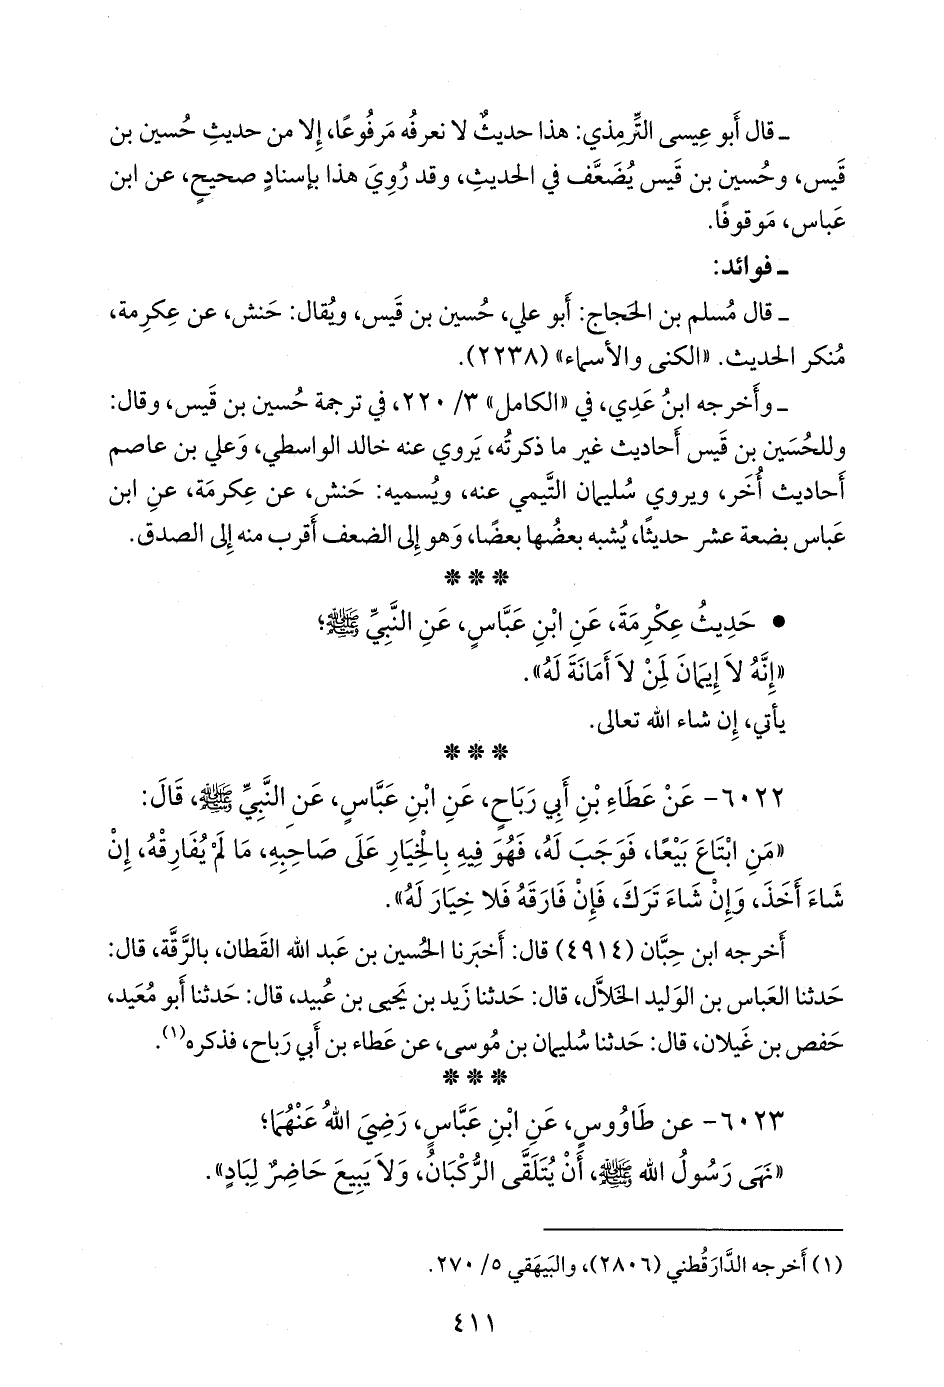 ـ قال أَبو عِيسى التِّرمِذي: هذا حديثٌ لا نعرفُه مَرفُوعًا، إِلا من حديثِ حُسين بن
قَيس، وحُسين بن قَيس يُضَعَّف في الحديثِ، وقد رُوِيَ هذا بإِسنادٍ صحيحٍ، عن ابن
عَباس، مَوقوفًا.
ـ فوائد:
ـ قال مُسلم بن الحَجاج: أَبو علي، حُسين بن قَيس، ويُقال: حَنش، عن عِكرمة،
مُنكر الحديث. «الكنى والأسماء» (٢٢٣٨).
ـ وأَخرجه ابنُ عَدِي، في «الكامل» ٣/ ٢٢٠، في ترجمة حُسين بن قَيس، وقال:
وللحُسَين بن قَيس أَحاديث غير ما ذكرتُه، يَروي عنه خالد الواسطي، وَعلي بن عاصم
أَحاديث أُخَر، ويروي سُليمان التَّيمي عنه، ويُسميه: حَنش، عن عِكرمَة، عنِ ابن
عَباس بضعة عشر حديثًا، يُشبه بعضُها بعضًا، وَهو إِلى الضعف أَقرب منه إِلى الصدق.
***
• حَدِيثُ عِكْرِمَةَ، عَنِ ابْنِ عَبَّاسٍ، عَنِ النَّبِيِّ ﷺ؛
«إِنَّهُ لاَ إِيمَانَ لِمَنْ لاَ أَمَانَةَ لَهُ».
يأتي، إِن شاء الله تعالى.
***
٦٠٢٢- عَنْ عَطَاءِ بْنِ أَبِي رَبَاحٍ، عَنِ ابْنِ عَبَّاسٍ، عَنِ النَّبِيِّ ﷺ، قَالَ:
«مَنِ ابْتَاعَ بَيْعًا، فَوَجَبَ لَهُ، فَهُوَ فِيهِ بِالْخِيَارِ عَلَى صَاحِبِهِ، مَا لَمْ يُفَارِقْهُ، إِنْ
شَاءَ أَخَذَ، وَإِنْ شَاءَ تَرَكَ، فَإِنْ فَارَقَهُ فَلا خِيَارَ لَهُ».
أَخرجه ابن حِبَّان (٤٩١٤) قال: أَخبَرنا الحُسين بن عَبد الله القَطان، بالرَّقة، قال:
حَدثنا العَباس بن الوَليد الخَلاَّل، قال: حَدثنا زَيد بن يَحيى بن عُبيد، قال: حَدثنا أَبو مُعَيد،
حَفص بن غَيلان، قال: حَدثنا سُليمان بن مُوسى، عن عَطاء بن أَبي رَباح، فذكره(١).
***
٦٠٢٣- عن طَاوُوسٍ، عَنِ ابْنِ عَبَّاسٍ، رَضِيَ اللهُ عَنْهُمَا؛
«نَهَى رَسُولُ الله ﷺ، أَنْ يُتَلَقَّى الرُّكْبَانُ، وَلاَ يَبِيعَ حَاضِرٌ لِبَادٍ».
(١) أَخرجه الدَّارَقُطني (٢٨٠٦)، والبَيهَقي ٥/ ٢٧٠.
٤١١